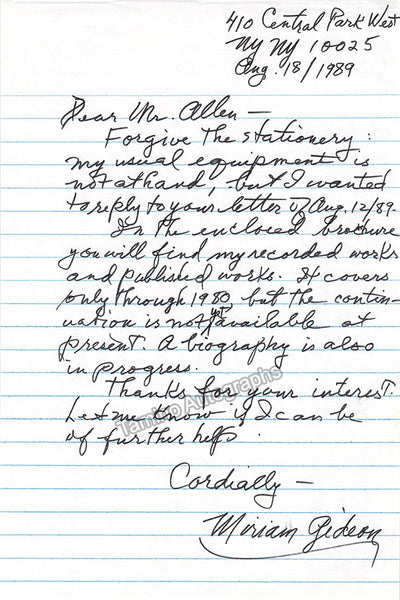 410 Central Park West
NY NY 10025
Aug. 18/1989
Dear Mr. Allen —
Forgive the stationery:
my usual equipment is
not at hand, but I wanted
to reply to your letter of Aug. 12/89.
In the enclosed brochure
you will find my recorded works
and published works. It covers
only through 1980, but the contin-
uation is not yet available at
present. A biography is also
in progress.
Thanks for your interest.
Let me know if I can be
of further help.
Tamino Autographs
Cordially —
Miriam Gideon